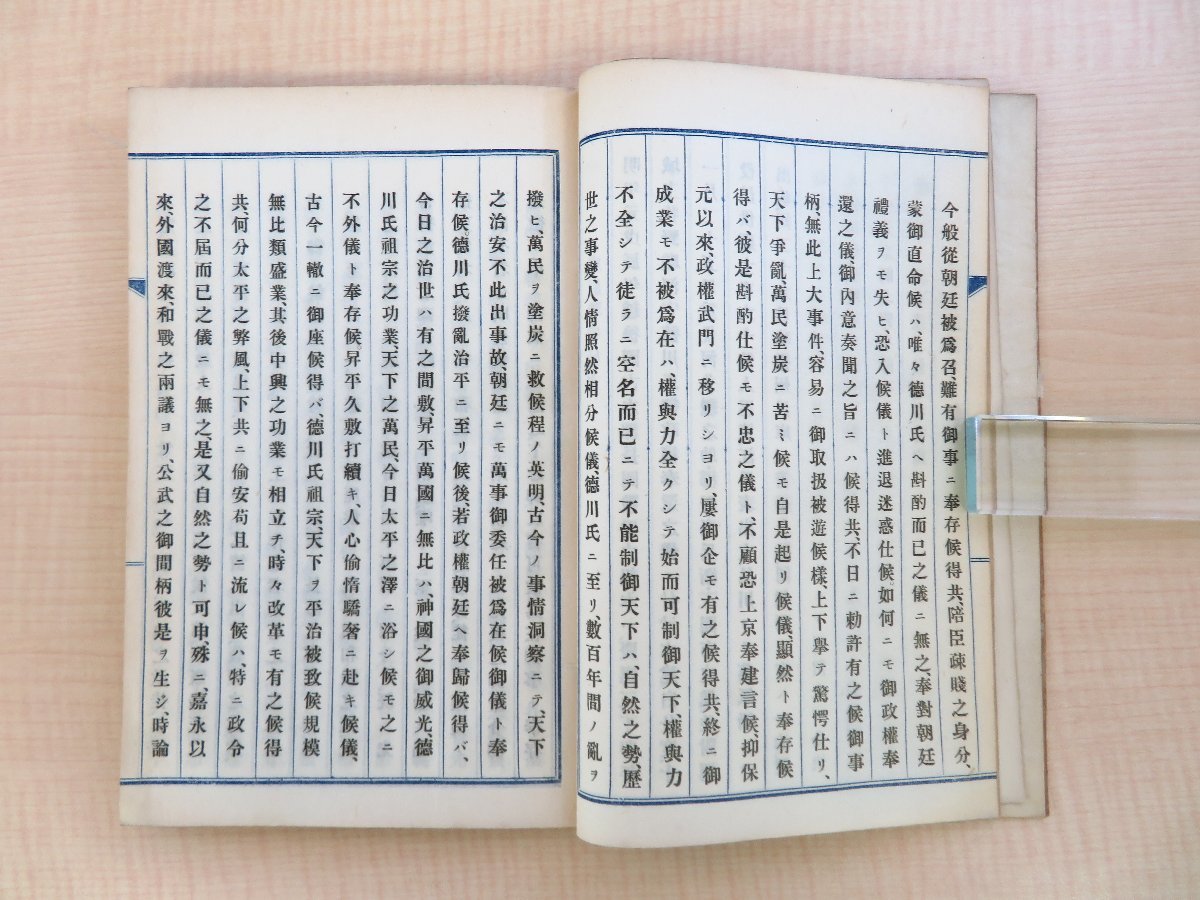 今般從朝廷被爲召、難有御事ニ奉存候得共、陪臣疎賤之身分、
蒙御直命候ハ、唯々德川氏ヘ斟酌而已之儀ニ無之、奉對朝廷
禮義ヲモ失ヒ、恐入候儀ト進退迷惑仕候、如何ニモ御政權奉
還之儀、御內意奏聞之旨ニハ候得共、不日ニ勅許有之候御事
柄、無此上大事件、容易ニ御取扱被遊候樣、上下擧テ驚愕仕リ、
天下爭亂、萬民塗炭ニ苦ミ候モ自是起リ候儀顯然ト奉存候
得バ、彼是斟酌仕候モ不忠之儀ト、不顧恐上京奉建言候、抑保
元以來、政權武門ニ移リシヨリ、屢御企モ有之候得共、終ニ御
成業モ不被爲在ハ、權與力全クシテ始而可制御天下、權與力
不全シテ徒ラニ空名而已ニテ不能制御天下ハ、自然之勢、歷
世之事變、人情照然相分候儀、德川氏ニ至リ、數百年間ノ亂ヲ
撥ヒ、萬民ヲ塗炭ニ救候程ノ英明、古今ノ事情洞察ニテ、天下
之治安不此出事故、朝廷ニモ萬事御委任被爲在候御儀ト奉
存候、德川氏撥亂治平ニ至リ候後、若政權朝廷ヘ奉歸候得バ、
今日之治世ハ有之間敷、昇平萬國ニ無比ハ、神國之御威光、德
川氏祖宗之功業、天下之萬民、今日太平之澤ニ浴シ候モ之ニ
不外儀ト奉存候、昇平久敷打續キ、人心偷惰驕奢ニ赴キ候儀、
古今一轍ニ御座候得バ、德川氏祖宗、天下ヲ平治被致候規模
無比類盛業、其後中興之功業モ相立チ、時々改革モ有之候得
共、何分太平之弊風、上下共ニ偷安苟且ニ流レ候ハ、特ニ政令
之不屆而已之儀ニモ無之、是又自然之勢ト可申、殊ニ、嘉永以
來、外國渡來、和戰之兩議ヨリ、公武之御間柄彼是ヲ生ジ、時論